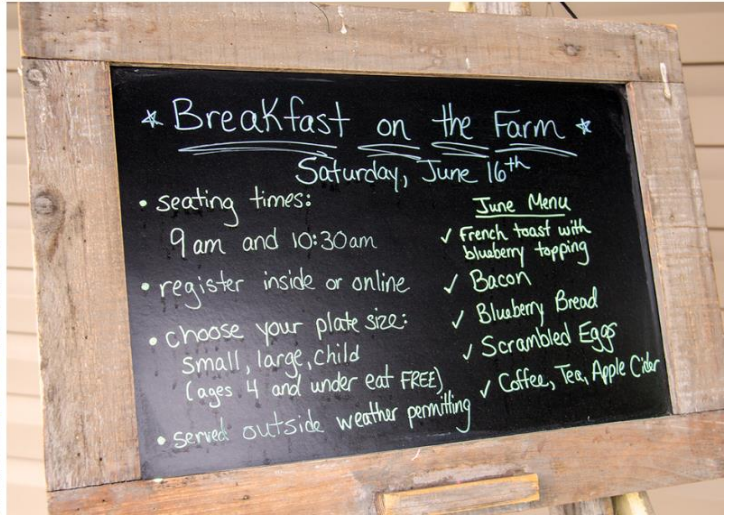 * Breakfast on the Farm *
Saturday, June 16th
• seating times:
9am and 10:30am
• register inside or online
• choose your plate size:
small, large, child
(ages 4 and under eat FREE)
• served outside weather permitting
June Menu
✓ French toast with
blueberry topping
✓ Bacon
✓ Blueberry Bread
✓ Scrambled Eggs
✓ Coffee, Tea, Apple Cider